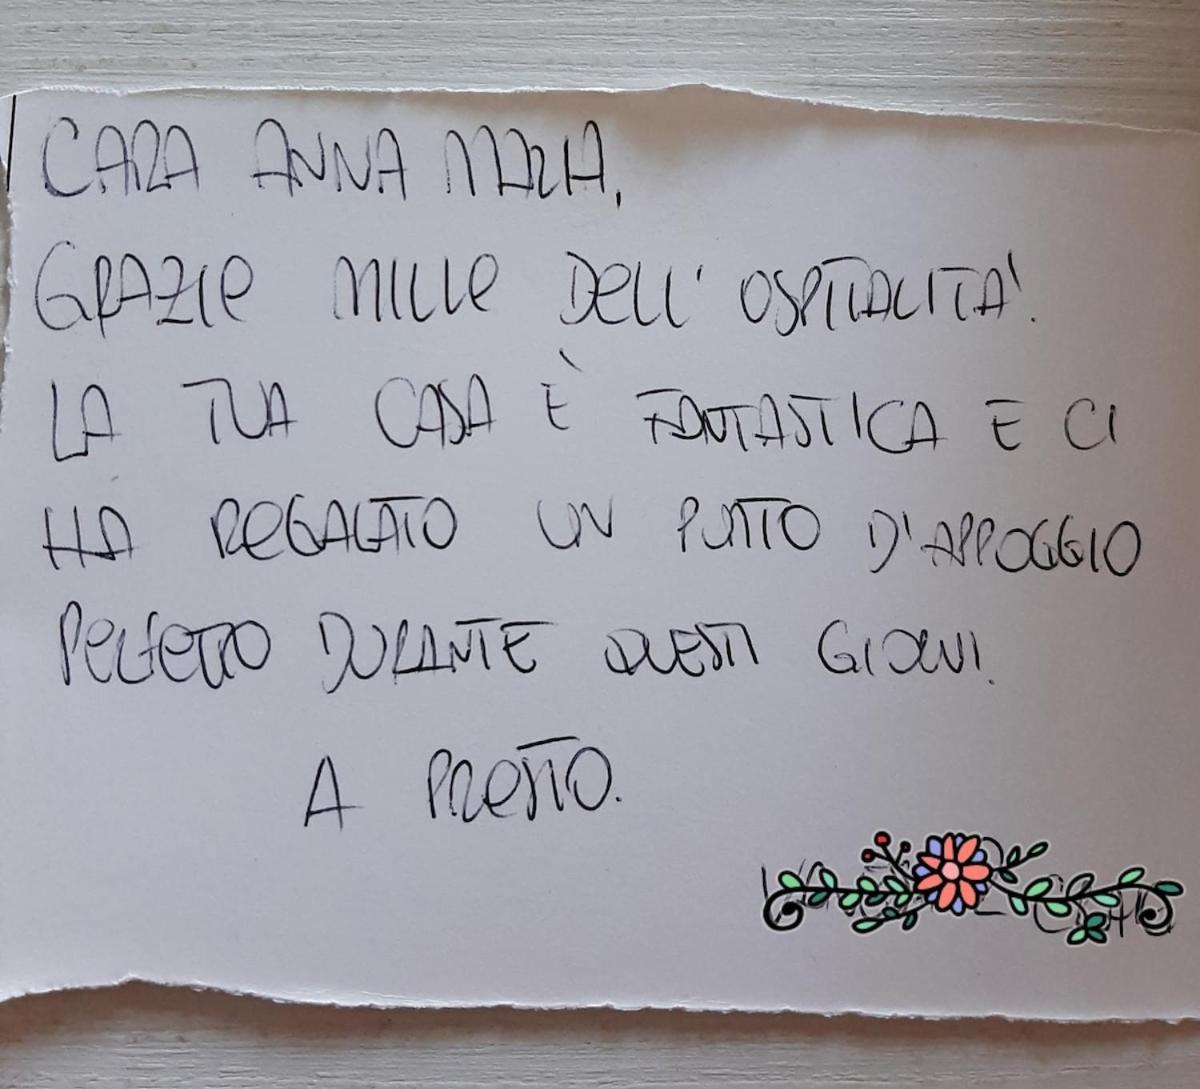 CARA ANNA MARIA,
GRAZIE MILLE DELL'OSPITALITA'.
LA TUA CASA È FANTASTICA E CI
HA REGALATO UN PUNTO D'APPOGGIO
PERFETTO DURANTE QUESTI GIORNI.
A PRESTO.